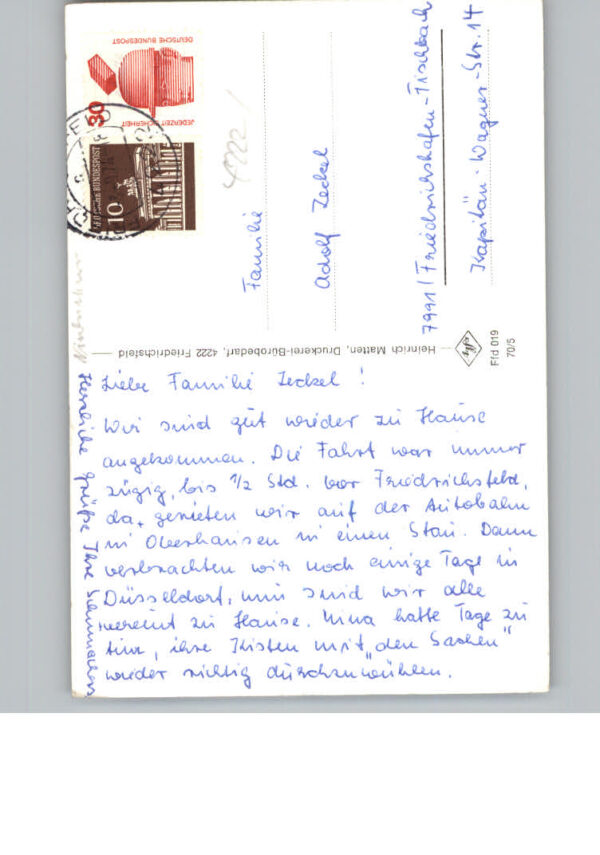 Liebe Familie Zeckel!
Wir sind gut wieder zu Hause
angekommen. Die Fahrt war immer
zügig, bis 1/2 Std. vor Friedrichsfeld,
da gerieten wir auf der Autobahn
in Oberhausen in einen Stau. Dann
verbrachten wir noch einige Tage in
Düsseldorf, nun sind wir alle
vereint zu Hause. Nina hatte Tage zu
tun, ihre Kisten mit "den Sachen"
wieder richtig durchzuwühlen.
Herzliche Grüße Ihre
Familie
Adolf Zeckel
7991 / Friedrichshafen-Fischbach
Kapitän-Wagner-Str. 14
4222
Heinrich Matten, Druckerei-Bürobedarf, 4222 Friedrichsfeld
Ffd 019
70/5
DEUTSCHE BUNDESPOST
JEDERZEIT SICHERHEIT
30
DEUTSCHE BUNDESPOST
10